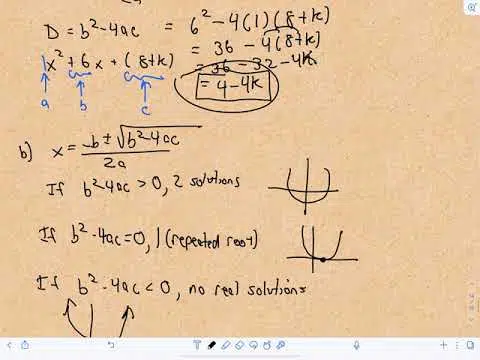 D = b²-4ac = 6²-4(1)(8+k)
= 36 - 4(8+k)
1x² + 6x + (8+k) = 36 - 32 - 4k
a b c = 4-4k
b) x = -b ± √b²-4ac / 2a
If b²-4ac > 0, 2 solutions
If b²-4ac = 0, 1 (repeated root)
If b²-4ac < 0, no real solutions